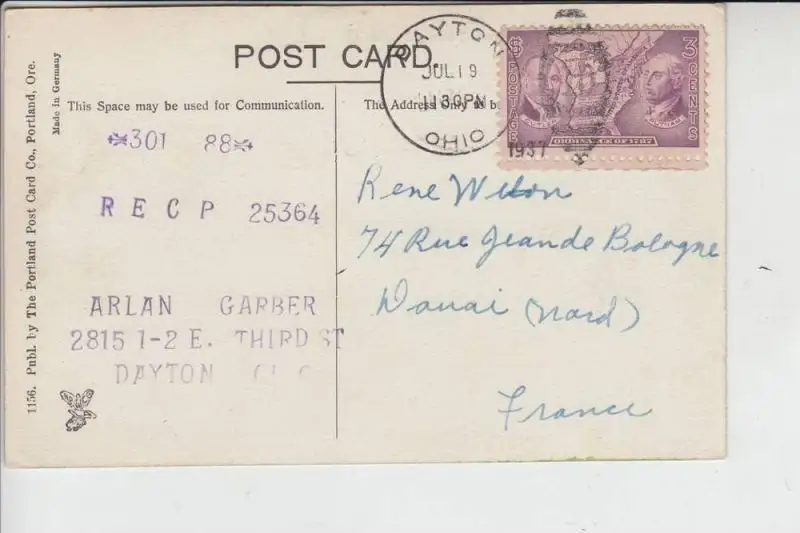 POST CARD.
This Space may be used for Communication.
The Address Only
1156. Publ. by The Portland Post Card Co., Portland, Ore.
Made in Germany
301 88
RECP 25364
ARLAN GARBER
2815 1-2 E. THIRD ST
DAYTON
DAYTON
JUL 19
1130PM
OHIO
1937
$ POSTAGE
3 CENTS
CUTLER
PUTNAM
ORDINANCE OF 1787
Rene
74 Rue Jeande Bologne
Douai (Nord)
France